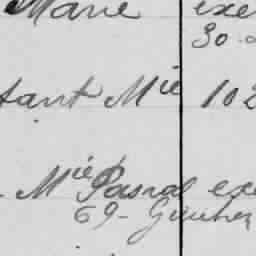 Marie exe
30
tant Mie 102
Mie Pascal exe
69-